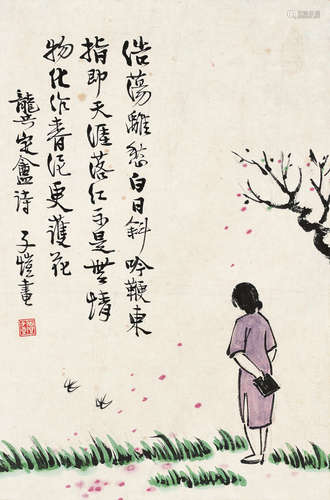 浩蕩離愁白日斜吟鞭東
指即天涯落紅不是無情
物化作春泥更護花
龔定盦詩 子愷畫